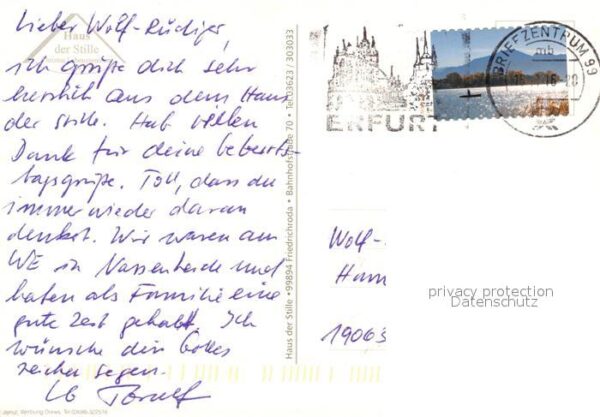 Lieber Wolf-Rüdiger,
Haus
der Stille
ich grüße dich sehr
herzlich aus dem Haus
der Stille. Hab vielen
Dank für deine Geburts-
tagsgrüße. Toll, dass du
immer wieder daran
denkst. Wir waren am
WE in Nassenheide und
haben als Familie eine
gute Zeit gehabt. Ich
wünsche dir Gottes
reichen Segen.
Haus der Stille • 99894 Friedrichroda • Bahnhofstraße 70 • Tel 03623 / 303033
ERFURT
BRIEFZENTRUM 99
mb
Wolf-
19063
privacy protection
Datenschutz